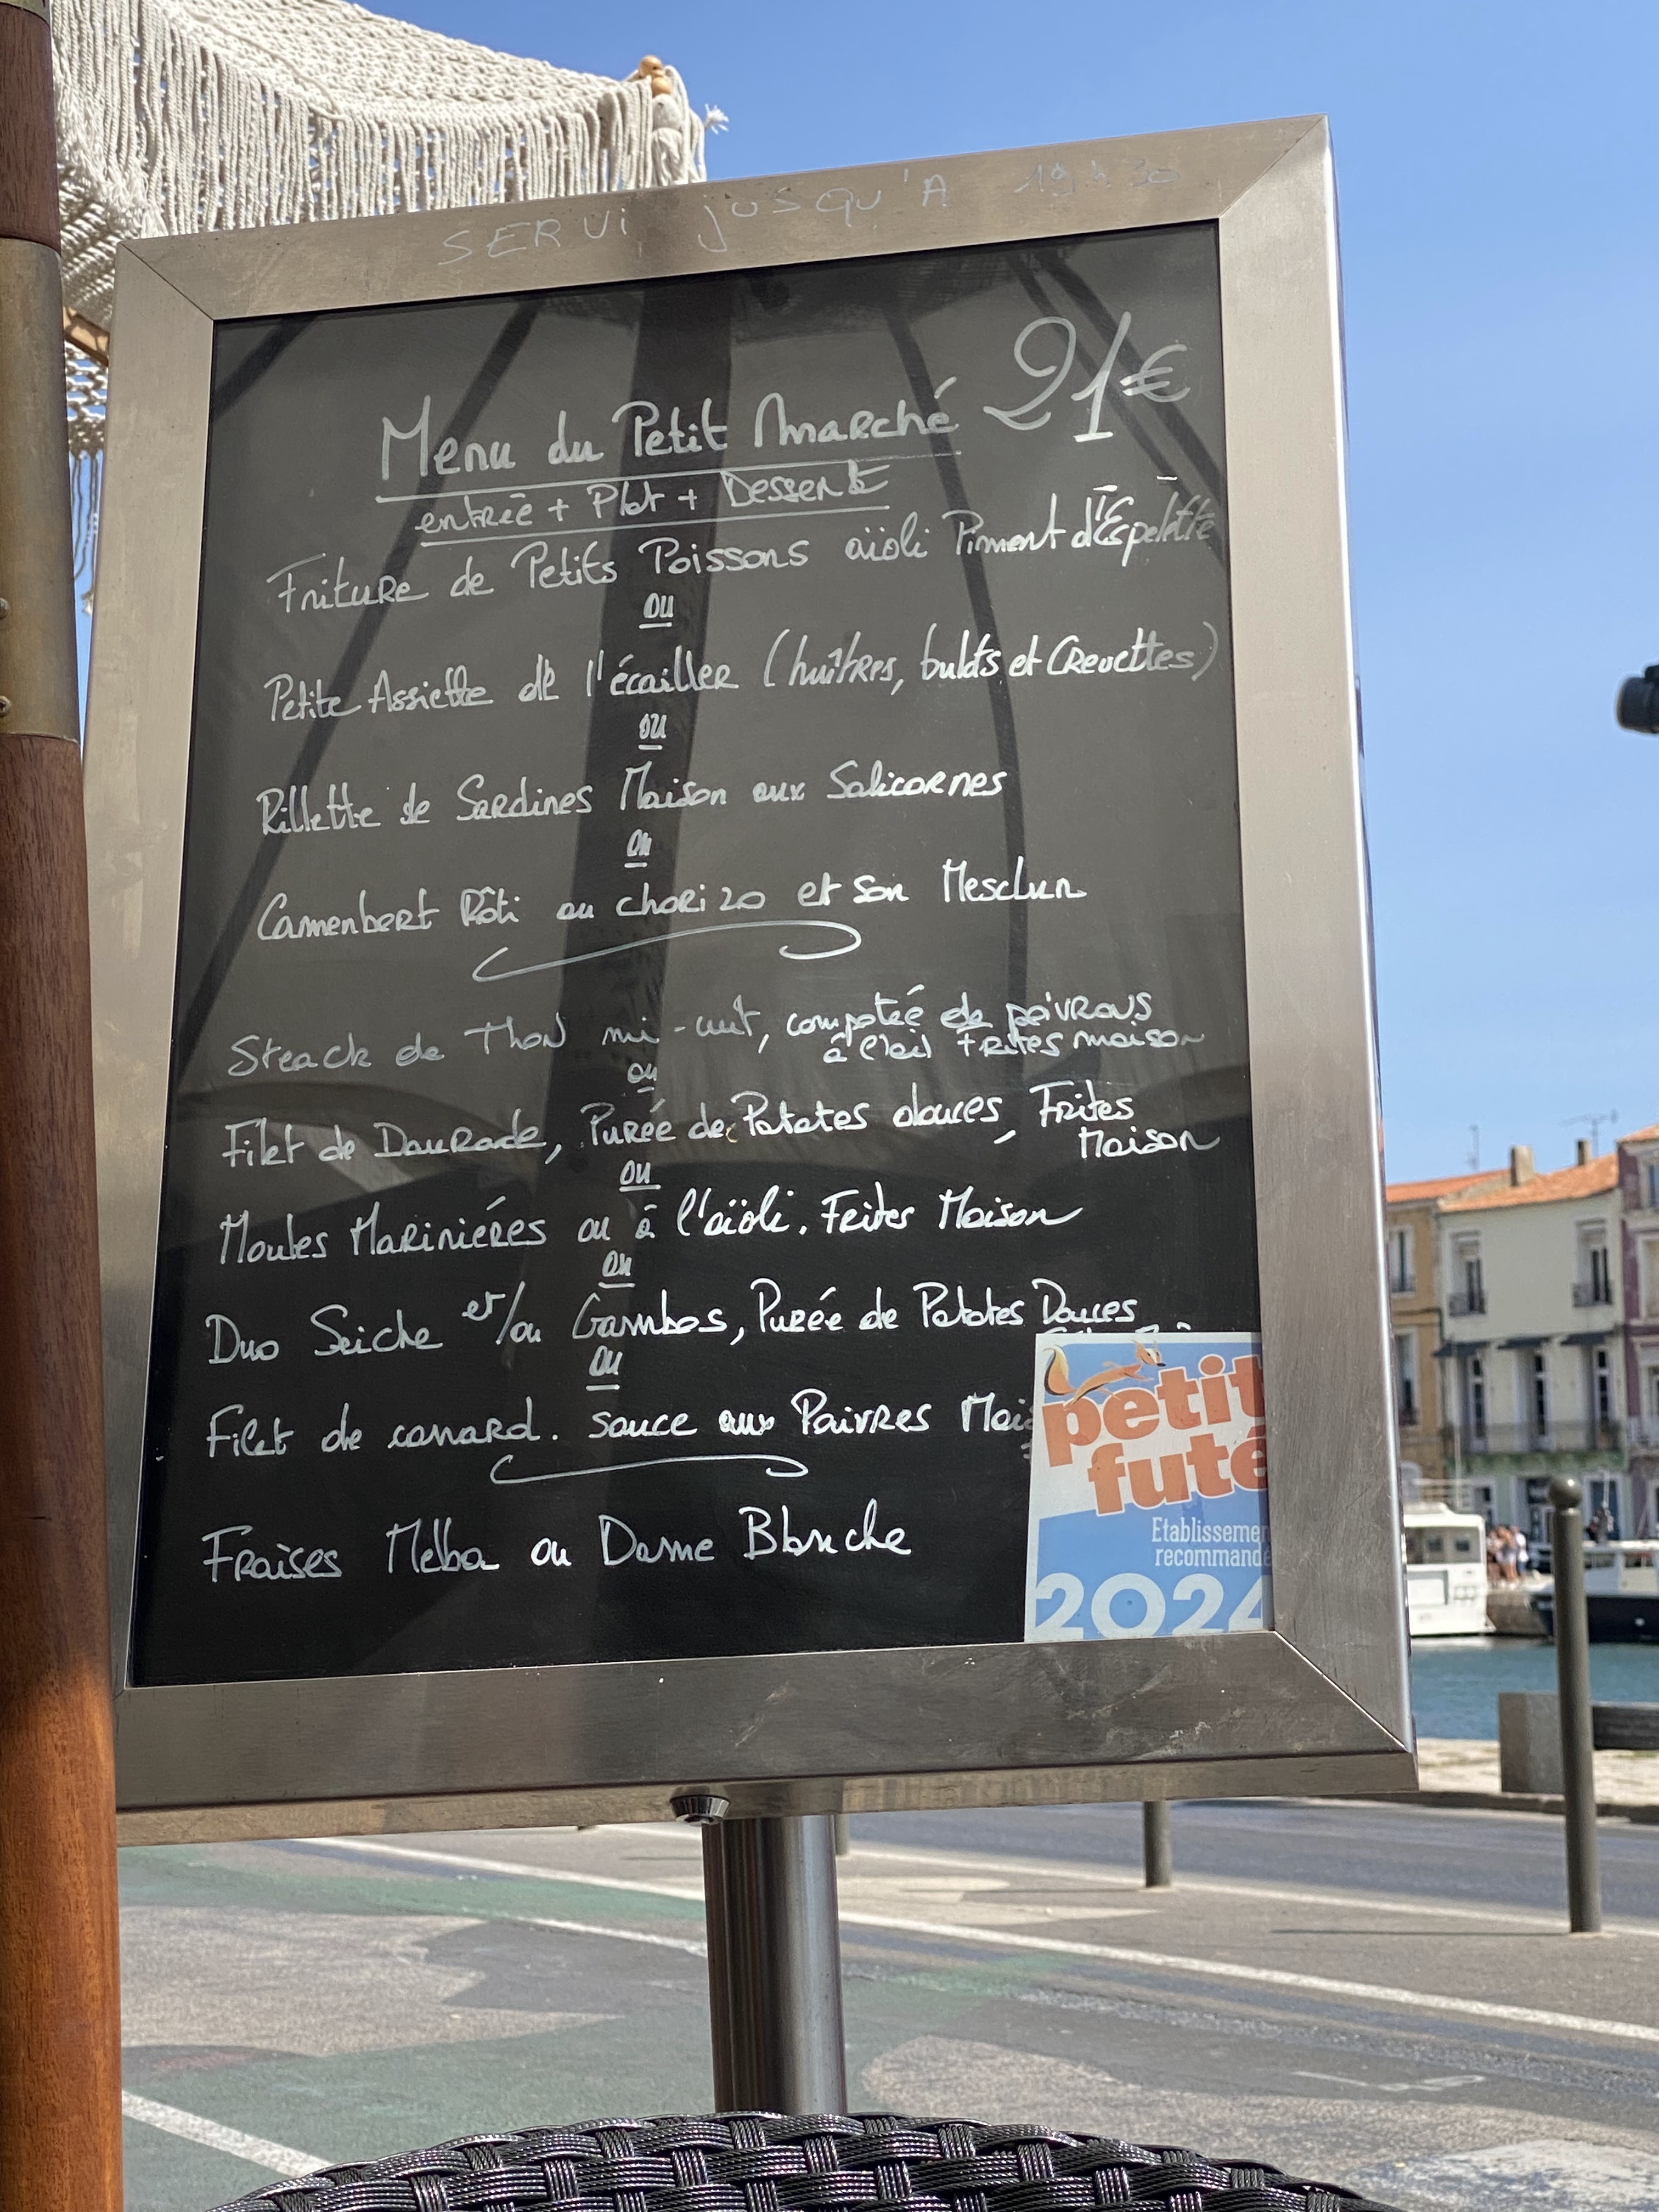 SERVi jusQU'A 19h30
Menu du Petit Marché 21€
entrée + Plat + Dessert
Friture de Petits Poissons aïoli Piment d'Espelette
ou
Petite Assiette de l'écailler (huîtres, bulots et Crevettes)
ou
Rillette de Sardines Maison aux Salicornes
ou
Camenbert Rôti au chorizo et son Mesclun
Steack de Thon mi-cuit, compotée de poivrons
à l'ail frites maison
ou
Filet de Daurade, Purée de Patates douces, Frites
Maison
ou
Moules Marinières ou à l'aïoli. Frites Maison
ou
Duo Seiche et/ou Gambas, Purée de Patates Douces
ou
Filet de canard. sauce aux Poivres Mai
Fraises Melba ou Dame Blanche
petit
futé
Etablissemen
recommandé
2024